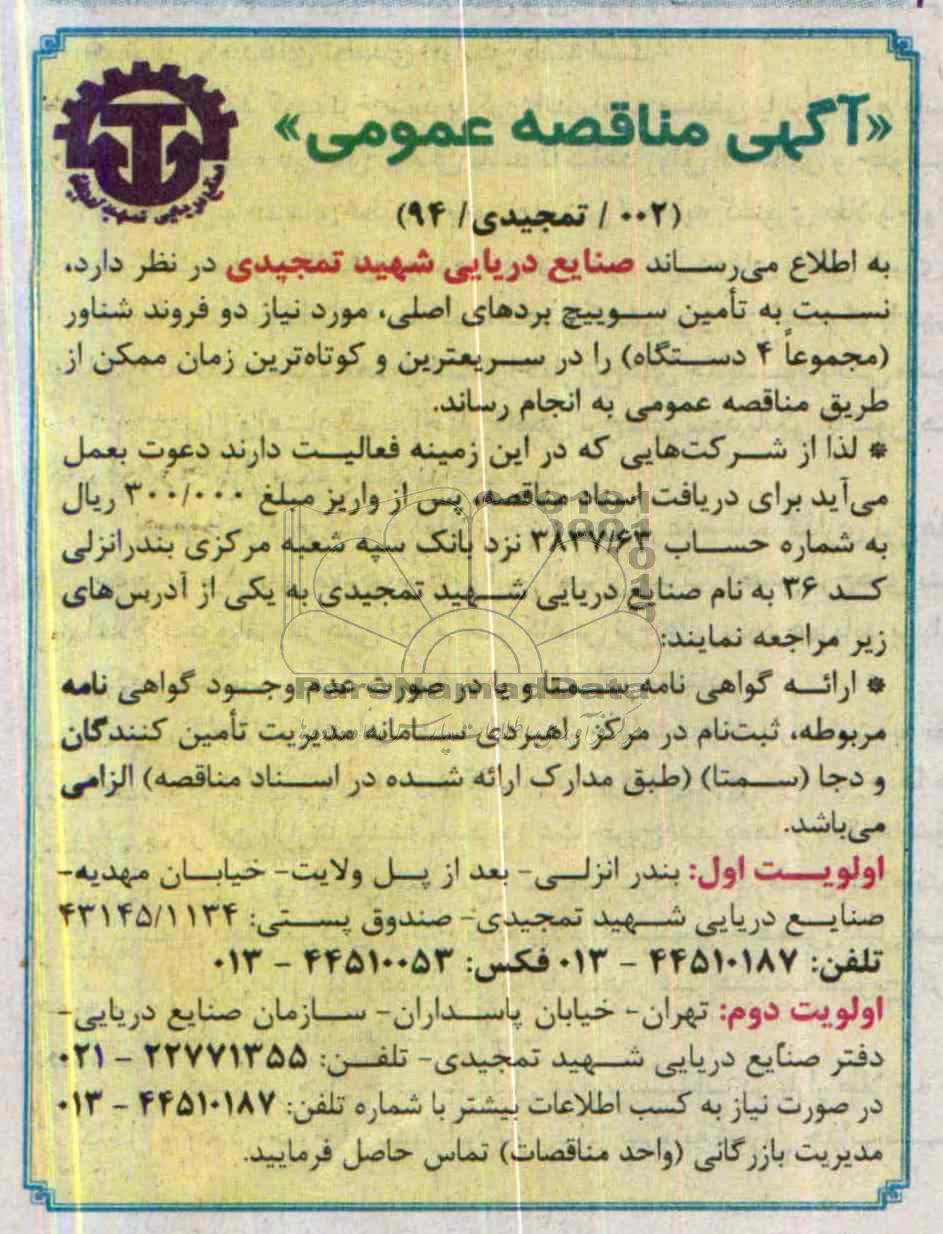 «آگهی مناقصه عمومی»
صنایع دریایی شهید تمجیدی
(۰۰۲ / تمجیدی/ ۹۴)
به اطلاع می‌رساند صنایع دریایی شهید تمجیدی در نظر دارد،
نسبت به تأمین سوییچ بردهای اصلی، مورد نیاز دو فروند شناور
(مجموعاً ۴ دستگاه) را در سریعترین و کوتاه‌ترین زمان ممکن از
طریق مناقصه عمومی به انجام رساند.
* لذا از شرکت‌هایی که در این زمینه فعالیت دارند دعوت بعمل
می‌آید برای دریافت اسناد مناقصه، پس از واریز مبلغ ۳۰۰/۰۰۰ ریال
به شماره حساب ۳۸۳۷/۶۳ نزد بانک سپه شعبه مرکزی بندرانزلی
کد ۳۶ به نام صنایع دریایی شهید تمجیدی به یکی از آدرس‌های
زیر مراجعه نمایند:
ParsNamadData
* ارائه گواهی نامه سمتا و یا در صورت عدم وجود گواهی نامه
مربوطه، ثبت‌نام در مرکز راهبردی سامانه مدیریت تأمین کنندگان
و دجا (سمتا) (طبق مدارک ارائه شده در اسناد مناقصه) الزامی
می‌باشد.
اولویت اول: بندر انزلی- بعد از پل ولایت- خیابان مهدیه-
صنایع دریایی شهید تمجیدی- صندوق پستی: ۴۳۱۴۵/۱۱۳۴
تلفن: ۴۴۵۱۰۱۸۷ - ۰۱۳ فکس: ۴۴۵۱۰۰۵۳ - ۰۱۳
اولویت دوم: تهران- خیابان پاسداران- سازمان صنایع دریایی-
دفتر صنایع دریایی شهید تمجیدی- تلفن: ۲۲۷۷۱۳۵۵ - ۰۲۱
در صورت نیاز به کسب اطلاعات بیشتر با شماره تلفن: ۴۴۵۱۰۱۸۷ - ۰۱۳
مدیریت بازرگانی (واحد مناقصات) تماس حاصل فرمایید.